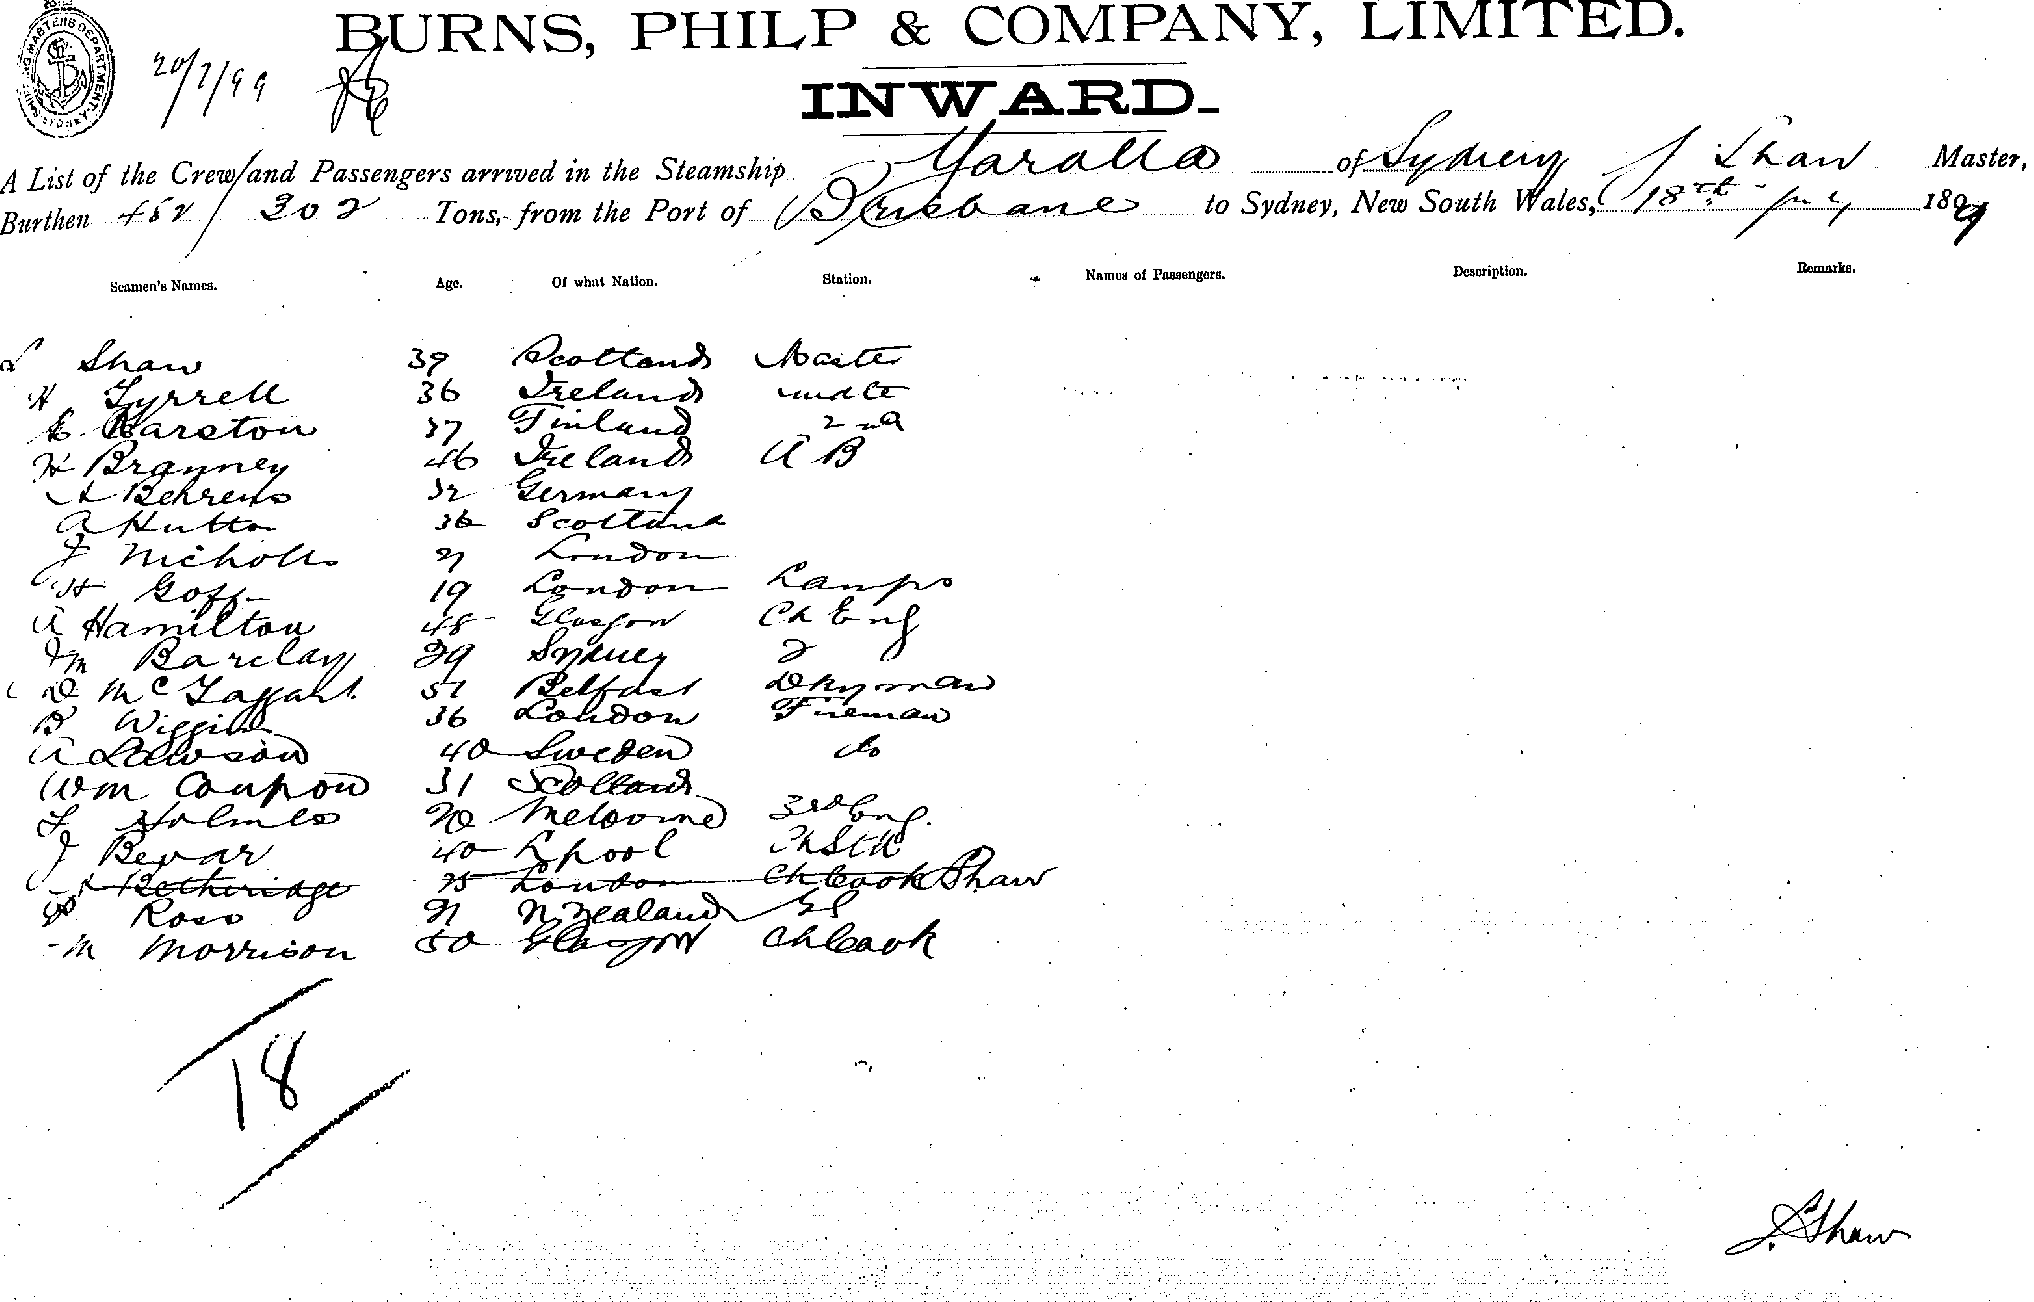 BURNS, PHILP & COMPANY, LIMITED.
20/7/99
INWARD.
A List of the Crew and Passengers arrived in the Steamship Yaralla of Sydney J Shaw Master,
Burthen 452/302 Tons, from the Port of Brisbane to Sydney, New South Wales, 18th July 1899
Seamen's Names. Age. Of what Nation. Station. Names of Passengers. Description. Remarks.
Shaw 39 Scotland Master
H Tyrrell 36 Ireland mate
Karston 37 Finland 2nd
H Branney 46 Ireland A B
A Behrens 32 Germany
A Hutton 36 Scotland
J Nicholls 21 London
H Goff 19 London Lamps
A Hamilton 48 Glasgow Ch Eng
Jm Barclay 29 Sydney 2
D McTaggart 51 Belfast Dkyman
B Wiggins 36 London Fireman
A Lawson 40 Sweden do
Wm Coupon 31 Scotland
Holmes 20 Melbourne 3rd Eng.
J Bevar 40 Lpool Ch Std
Betheridge 25 London Ch Cook Shaw
Ross 21 N. Zealand
M Morrison 50 Glasgow Ch Cook
18
J. Shaw